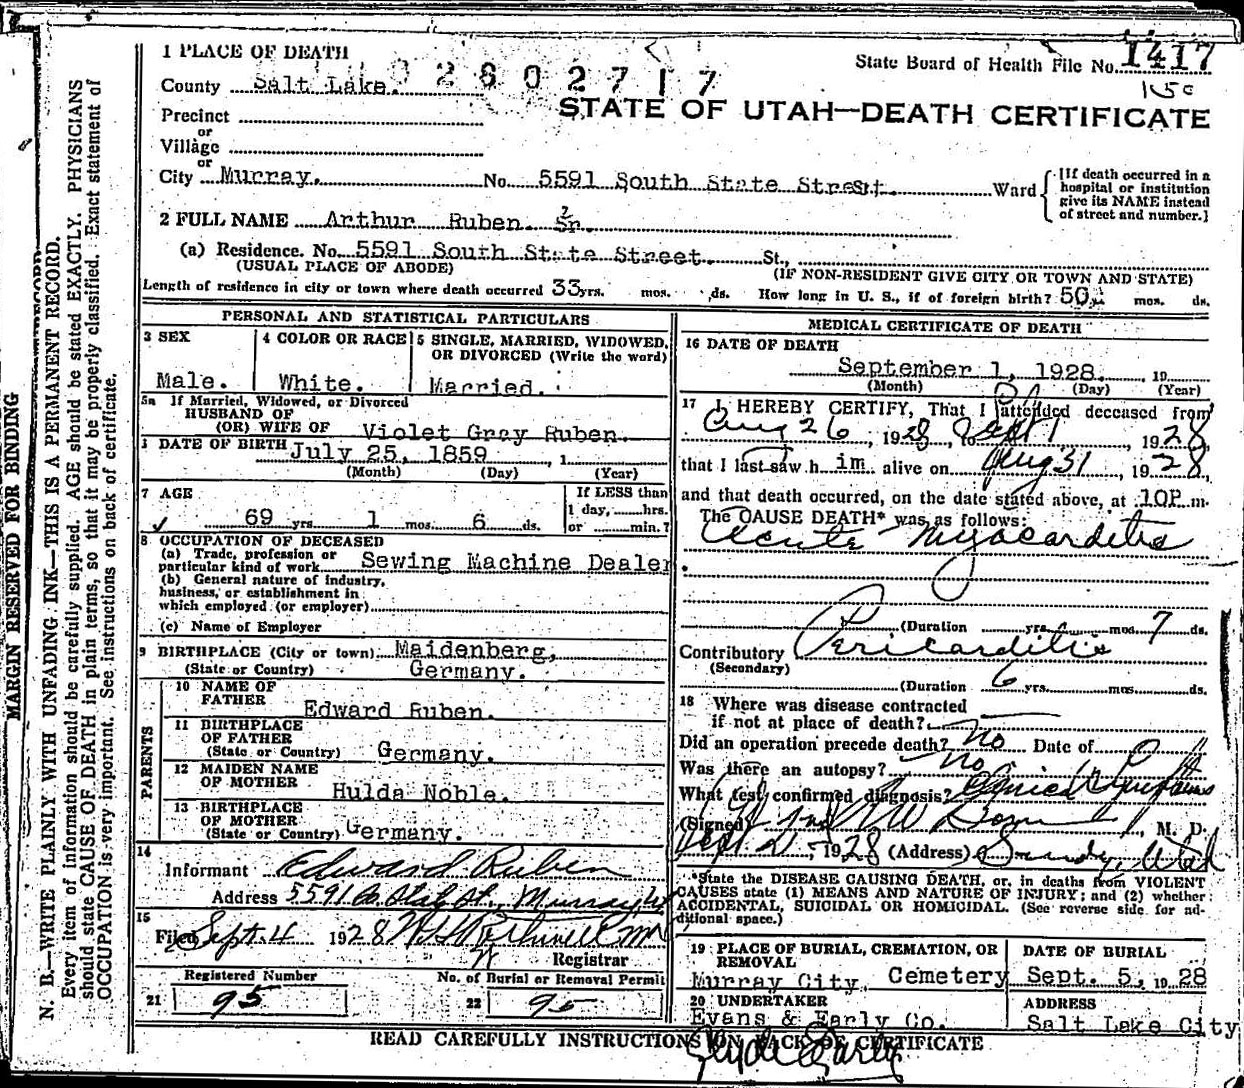 1 PLACE OF DEATH
State Board of Health File No. 1417
County Salt Lake.
2602717
STATE OF UTAH—DEATH CERTIFICATE
Precinct
or
Village
or
City Murray. No. 5591 South State Street. Ward
[If death occurred in a
hospital or institution
give its NAME instead
of street and number.]
2 FULL NAME Arthur Ruben Sr.
(a) Residence. No. 5591 South State Street. St.,
(USUAL PLACE OF ABODE) (IF NON-RESIDENT GIVE CITY OR TOWN AND STATE)
Length of residence in city or town where death occurred 33 yrs. mos. ds. How long in U. S., if of foreign birth? 50 mos. ds.
PERSONAL AND STATISTICAL PARTICULARS
3 SEX
Male.
4 COLOR OR RACE
White.
5 SINGLE, MARRIED, WIDOWED,
OR DIVORCED (Write the word)
Married.
5a If Married, Widowed, or Divorced
HUSBAND OF
(OR) WIFE OF Violet Gray Ruben.
DATE OF BIRTH July 25, 1859, 1
(Month) (Day) (Year)
7 AGE
69 yrs 1 mos. 6 ds.
If LESS than
1 day, hrs.
or min.?
8 OCCUPATION OF DECEASED
(a) Trade, profession or
particular kind of work Sewing Machine Dealer
(b) General nature of industry,
business, or establishment in
which employed (or employer)
(c) Name of Employer
9 BIRTHPLACE (City or town) Maidenberg,
(State or Country) Germany.
PARENTS
10 NAME OF
FATHER Edward Ruben.
11 BIRTHPLACE
OF FATHER
(State or Country) Germany.
12 MAIDEN NAME
OF MOTHER Hulda Noble.
13 BIRTHPLACE
OF MOTHER
(State or Country) Germany.
14
Informant Edward Ruben
Address 5591 So. State St., Murray
15
Filed Sept. 4 1928
Registrar
Registered Number No. of Burial or Removal Permit
21 95 22 95
MEDICAL CERTIFICATE OF DEATH
16 DATE OF DEATH
September 1, 1928. 19
(Month) (Day) (Year)
17 I HEREBY CERTIFY, That I attended deceased from
Aug 26, 1928 to Sept 1, 1928
that I last saw him alive on Aug 31, 1928,
and that death occurred, on the date stated above, at 10P m.
The CAUSE DEATH* was as follows:
Acute Myocarditis
(Duration yrs. mos. 7 ds.
Contributory Pericarditis
(Secondary)
(Duration 6 yrs. mos. ds.
18 Where was disease contracted
if not at place of death?
Did an operation precede death? No Date of
Was there an autopsy? No
What test confirmed diagnosis? Clinical Symptoms
(Signed) , M. D.
Sept. 2, 1928 (Address) Sandy, Utah
*State the DISEASE CAUSING DEATH, or, in deaths from VIOLENT
CAUSES state (1) MEANS AND NATURE OF INJURY; and (2) whether
ACCIDENTAL, SUICIDAL OR HOMICIDAL. (See reverse side for ad-
ditional space.)
19 PLACE OF BURIAL, CREMATION, OR
REMOVAL
Murray City, Cemetery
DATE OF BURIAL
Sept. 5, 1928
20 UNDERTAKER
Evans & Early Co.
ADDRESS
Salt Lake City
READ CAREFULLY INSTRUCTIONS ON BACK OF CERTIFICATE
Clyde Early
MARGIN RESERVED FOR BINDING
N. B.—WRITE PLAINLY WITH UNFADING INK—THIS IS A PERMANENT RECORD.
Every item of information should be carefully supplied. AGE should be stated EXACTLY. PHYSICIANS
should state CAUSE OF DEATH in plain terms, so that it may be properly classified. Exact statement of
OCCUPATION is very important. See instructions on back of certificate.